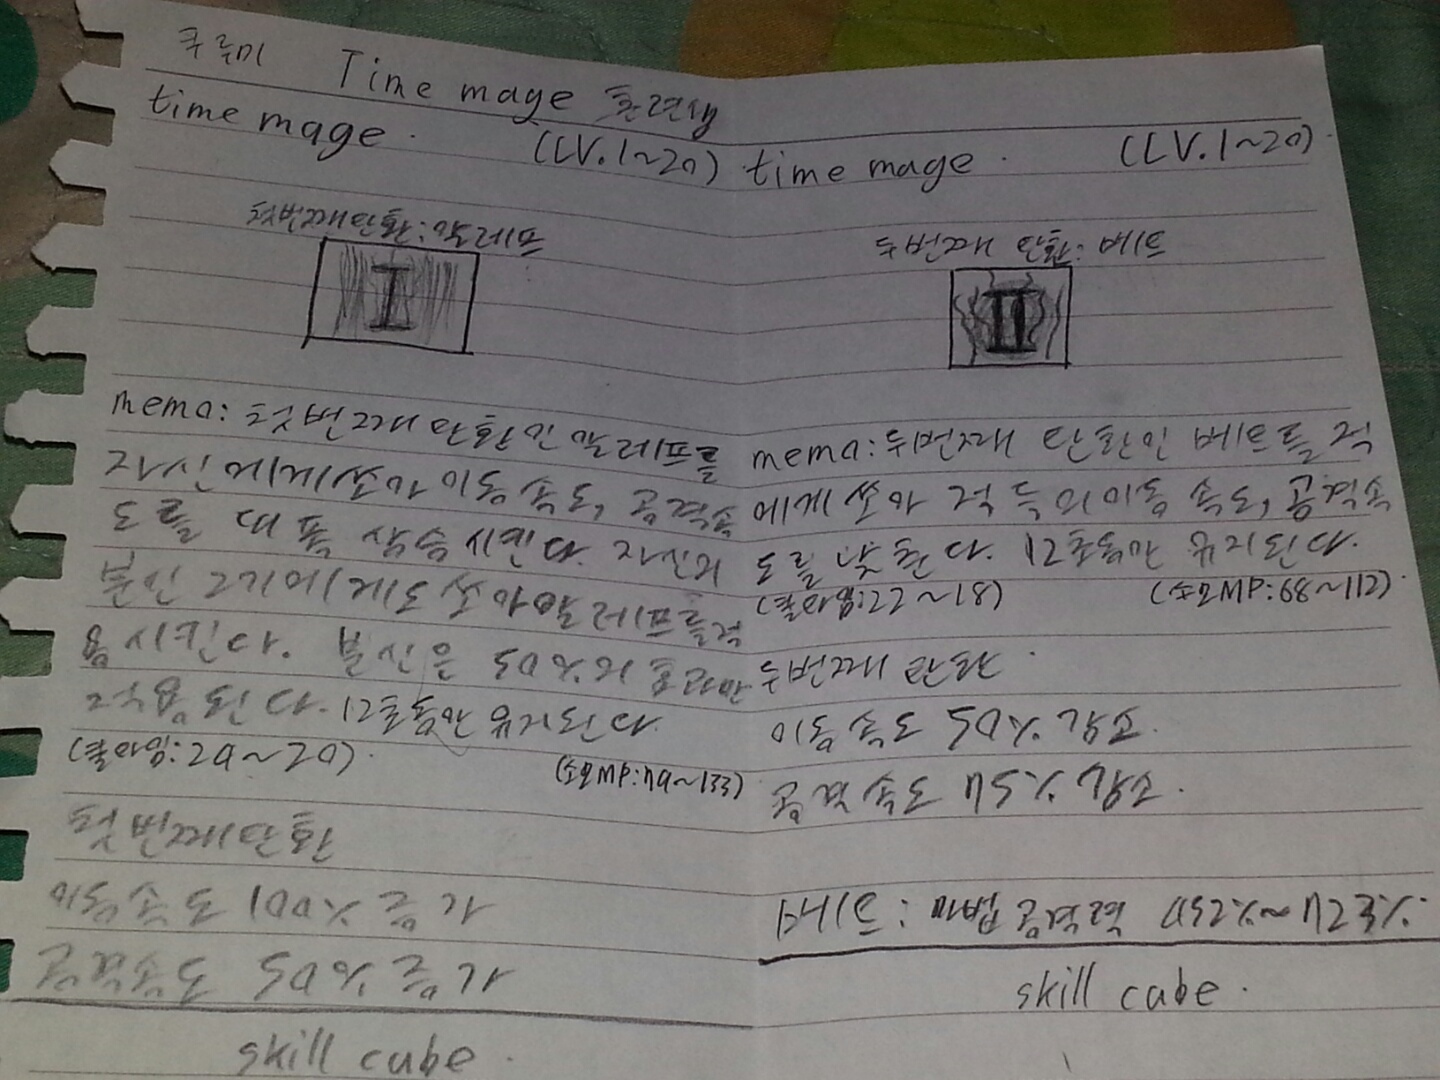 쿠루미 Time mage 훈련생
time mage.
(LV.1~20)
첫번째탄환:알레프
I
memo: 첫번째 탄환인 알레프를
자신에게쏘아 이동 속도, 공격속
도를 대폭 상승시킨다. 자신의
분신 2기에게도 쏘아알레프를적
용시킨다. 분신은 50%의 효과만
적용된다. 12초동안 유지된다.
(쿨타임:20~20)
(소모MP:70~133)
첫번째탄환
이동속도 100% 증가
공격속도 50% 증가
skill cube.
time mage.
(LV.1~20)
두번째 탄환: 베트
II
memo: 두번째 탄환인 베트를 적
에게 쏘아 적 득의이동 속도, 공격속
도를 낮춘다. 12초동안 유지된다.
(쿨타임:22~18)
(소모MP:68~112)
두번째 탄환
이동 속도 50% 감소.
공격 속도 75% 감소.
베트: 마법공격력 452%~723%
skill cube.